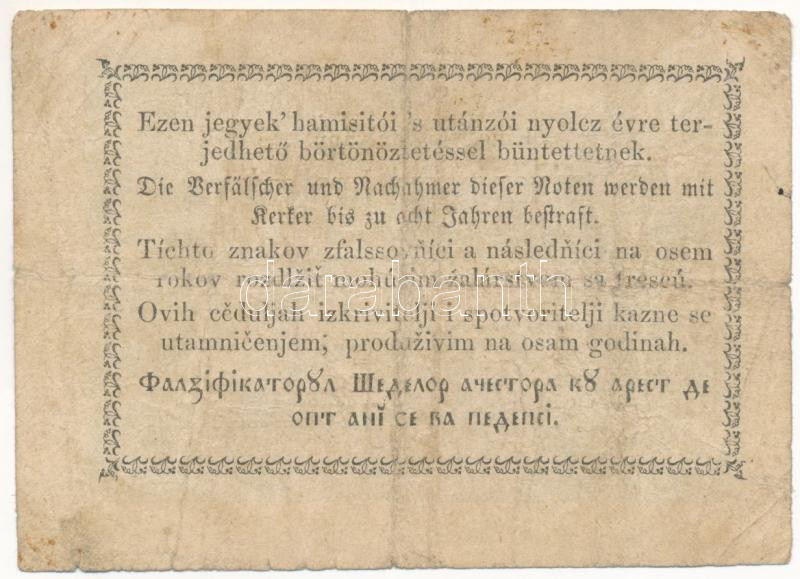 Ezen jegyek' hamisitói 's utánzói nyolcz évre ter-
jedhető börtönöztetéssel büntettetnek.
Die Verfälscher und Nachahmer dieser Noten werden mit
Kerker bis zu acht Jahren bestraft.
Tíchto znakov zfalssovňíci a následňíci na osem
rokov rozdlžiť mohúcim žalársivem sa trescú.
darabanth
Ovih cěduljah izkrivitelji i spotvoritelji kazne se
utamničenjem, produživim na osam godinah.
Фалзіфікаторꙋл Шеделор ачестора кꙋ арест де
опт анĭ се ва педепсі.